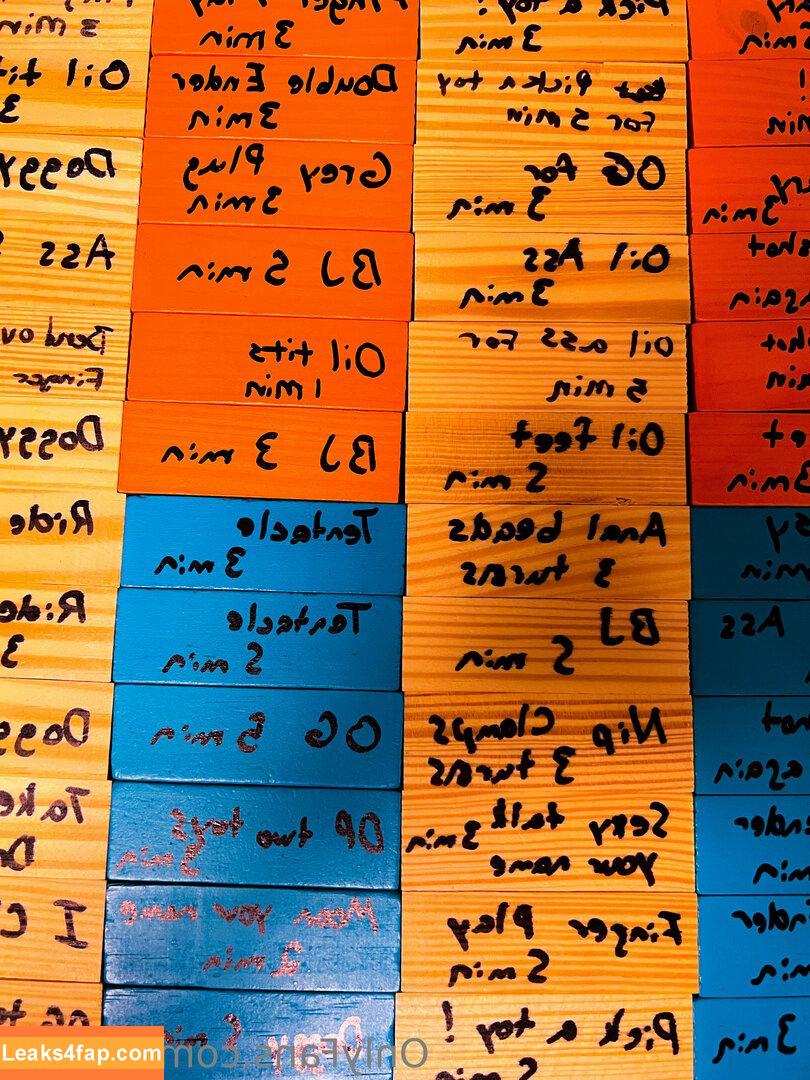 5 min
Oil tit
3
Doggy
Ass
Bend ov
Finger
Doggy
Ride
Ride
3
Dogg
Take
I C
3 min
Double Ender
3 min
Grey Plug
3 min
BJ 5 min
Oil tits
1 min
BJ 3 min
Tentacle
3 min
Tentacle
5 min
OG 5 min
DP two toys
5 min
Moan your name
2 min
Pick a toy!
3 min
Pick a toy
For 5 min
OG for
3 min
Oil Ass
3 min
Oil ass For
5 min
Oil feet
5 min
Anal beads
3 turns
BJ
5 min
Nip Clamps
3 turns
Sexy talk
your name 3 min
Finger Play
5 min
Pick a toy!
3 min
min
3 min
again
min
3 min
min
Ass
again
min
min
3 min
OnlyFans.com
Leaks4fap.com